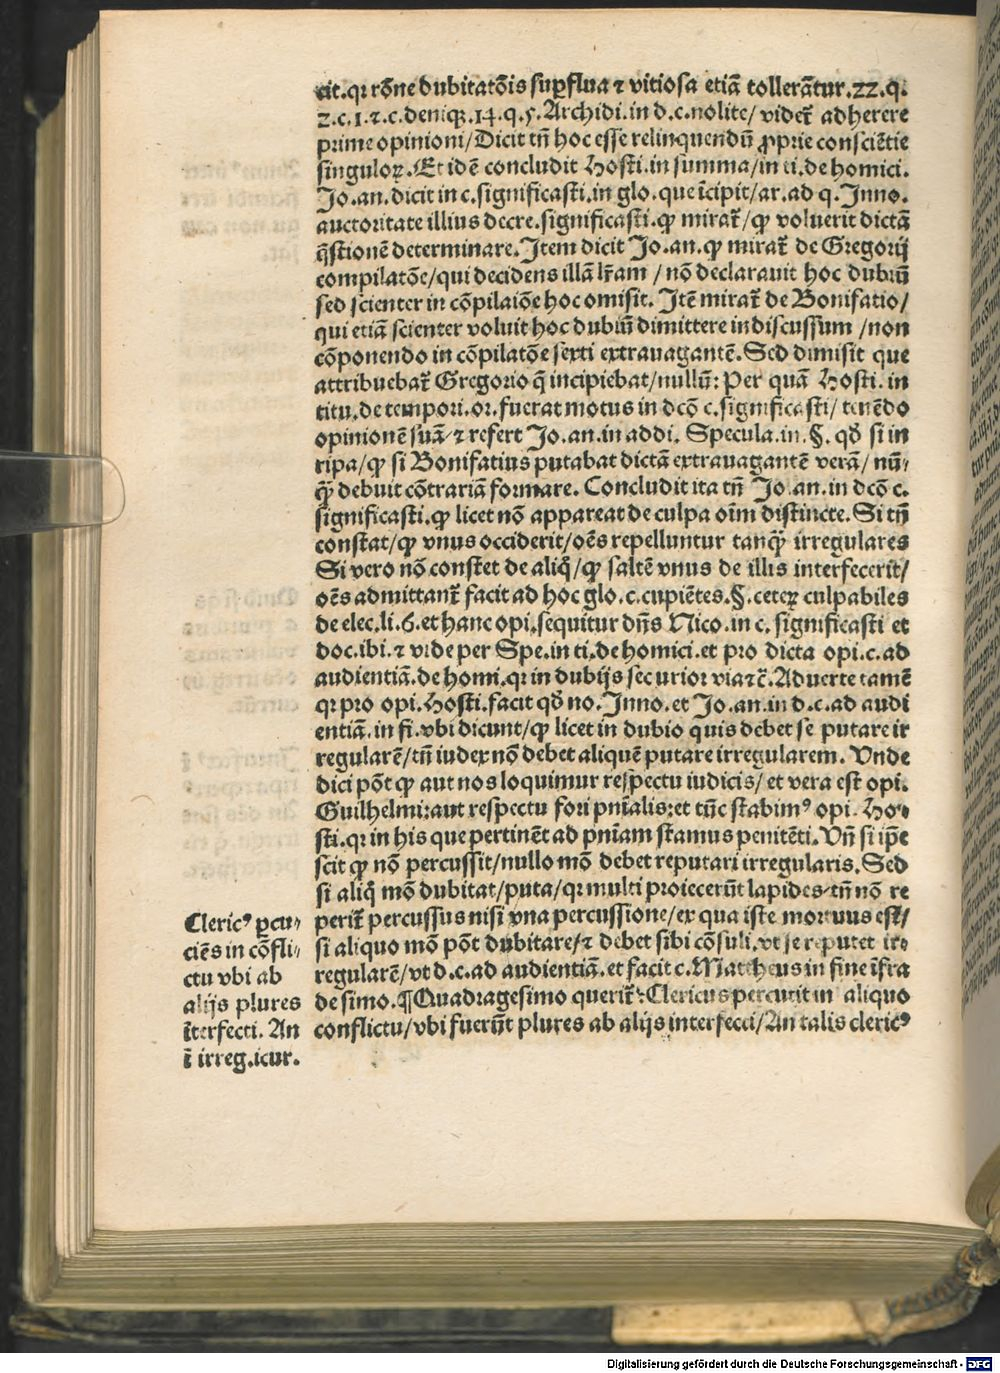 cit.qꝛ rõne dubitatõis suꝑflua ⁊ vitiosa etiã tollerãtur.22.q.
2.c.1.⁊.c.deniqꝫ.14.q.5.Archidi.in d.c.nolite/ videt̃ adherere
prime opinioni/Dicit tñ hoc esse relinquendũ ꝓprie consciẽtie
singuloꝝ.Et idẽ concludit Hosti.in summa/in ti.de homici.
Jo.an.dicit in c.significasti.in glo.que ĩcipit/ar.ad q.Inno.
auctoritate illius decre.significasti.ꝙ mirat̃/ꝙ voluerit dictã
q̃stionẽ determinare.Item dicit Jo.an.ꝙ mirat̃ de Gregorij
compilatõe/qui decidens illã lr̃am /nõ declarauit hoc dubiũ
sed scienter in cõpilaiõe hoc omisit. Itẽ mirat̃ de Bonifatio/
qui etiã scienter voluit hoc dubiũ dimittere indiscussum /non
cõponendo in cõpilatõe sexti extrauagantẽ.Sed dimisit que
attribuebat̃ Gregorio q̃ incipiebat/nullũ: Per quã Hosti.in
titu.de tempori.or.fuerat motus in dcõ c.significasti/ tenẽdo
opinionẽ suã/⁊ refert Jo.an.in addi. Specula.in.§. qđ si in
ripa/ꝙ si Bonifatius putabat dictã extrauagantẽ verã/ nũ-
q̃ȝ debuit cõtrariã formare. Concludit ita tñ Jo.an.in dcõ c.
significasti.ꝙ licet nõ appareat de culpa oĩm distincte.Si tñ
constat/ꝙ vnus occiderit/oẽs repelluntur tanq̃ȝ irregulares
Si vero nõ constet de aliq̃/ꝙ saltẽ vnus de illis interfecerit/
oẽs admittant̃ facit ad hoc glo.c.cupiẽtes.§.ceteꝝ culpabiles
de elec.li.6.et hanc opi.sequitur dñs Nico.in c.significasti et
doc.ibi.⁊ vide per Spe.in ti.de homici.et pro dicta opi.c.ad
audientiã.de homi.qꝛ in dubijs securior via⁊c̃.Aduerte tamẽ
qꝛ pro opi.Hosti.facit qđ no.Inno.et Jo.an.in d.c.ad audi
entiã.in fi.vbi dicunt/ꝙ licet in dubio quis debet se putare ir
regularẽ/tñ iudex nõ debet aliquẽ putare irregularem. Vnde
dici põt ꝙ aut nos loquimur respectu iudicis/ et vera est opi.
Guilhelmi:aut respectu fori pñtalis:et tũc stabimꝰ opi. Ho-
sti.qꝛ in his que pertinẽt ad pñiam stamus penitẽti.Vñ si ip̃e
scit ꝙ nõ percussit/nullo mõ debet reputari irregularis.Sed
si aliq̃ mõ dubitat/puta/qꝛ multi proiecerũt lapides/tñ nõ re
perit̃ percussus nisi vna percussione/ex qua iste mortuus est/
si aliquo mõ põt dubitare/⁊ debet sibi cõsuli.vt se reputet ir-
regularẽ/vt d.c.ad audientiã.et facit c.Mattheus in fine ĩfra
de simo.¶Quadragesimo querit̃:Clericus percutit in aliquo
conflictu/vbi fuerũt plures ab alijs interfecti/An talis clericꝰ
Clericꝰ ꝑcu-
ciẽs in cõfli-
ctu vbi ab
alijs plures
ĩterfecti. An
ĩ irreg.icur.
Digitalisierung gefördert durch die Deutsche Forschungsgemeinschaft - DFG